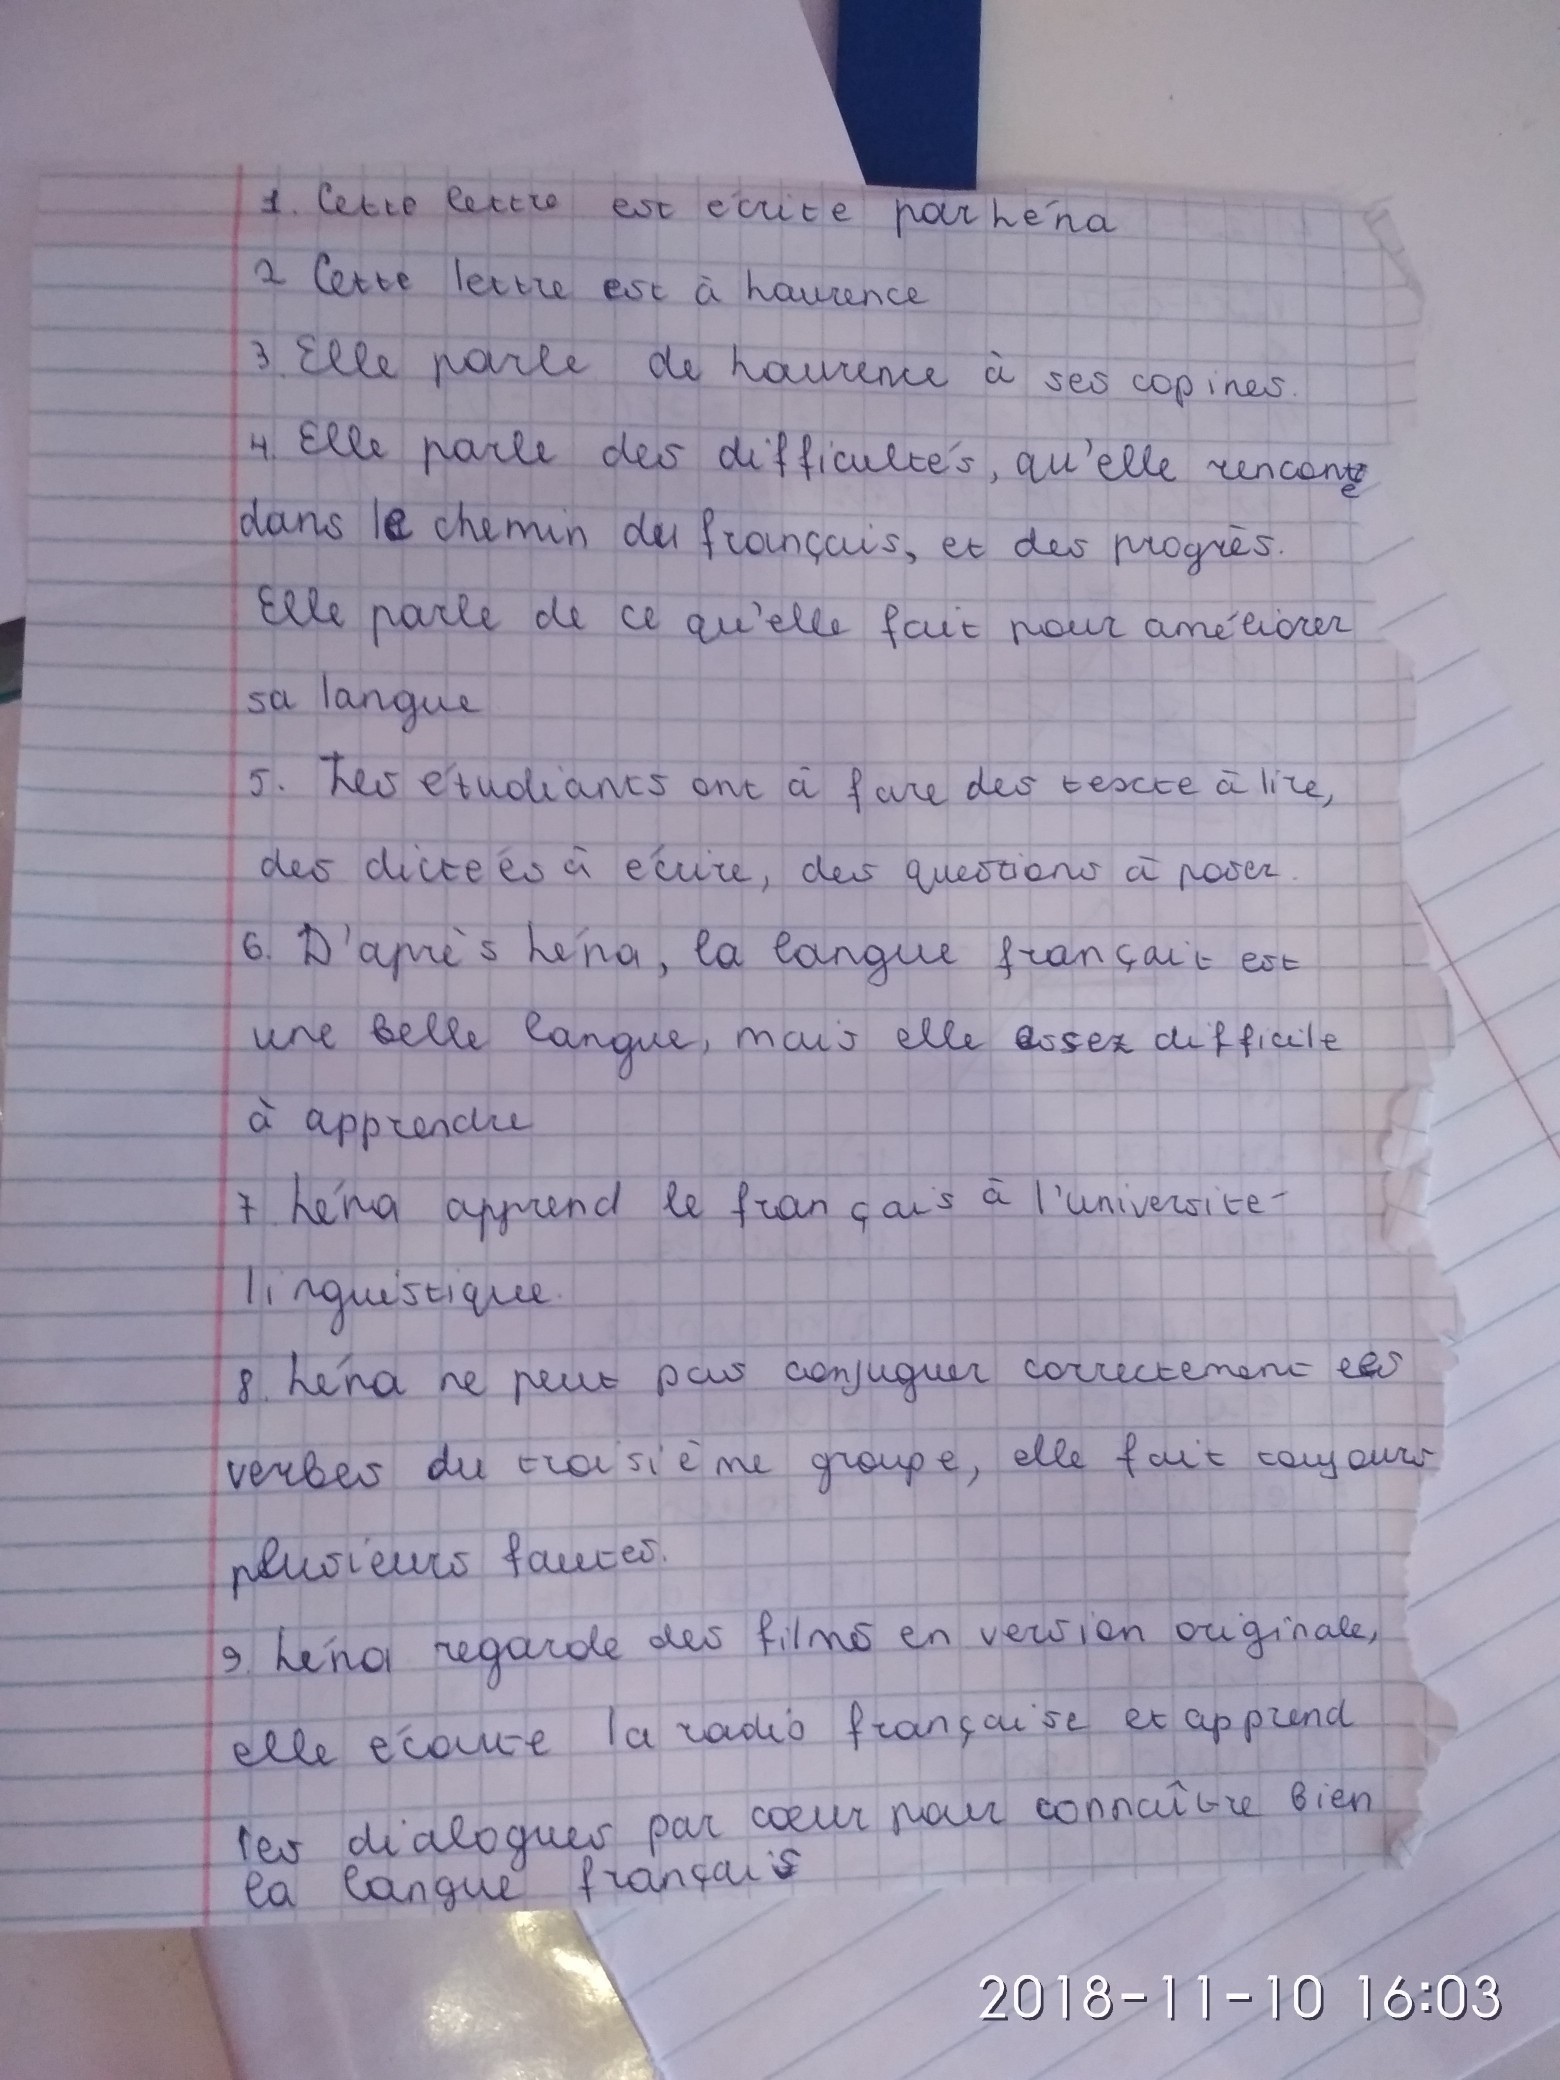 1. Cette lettre est écrite par Léna
2 Cette lettre est à Laurence
3. Elle parle de Laurence à ses copines.
4. Elle parle des difficultés, qu'elle rencontre
dans le chemin du français, et des progrès.
Elle parle de ce qu'elle fait pour améliorer
sa langue
5. Les étudiants ont à fare des texte à lire,
des dictées à écrire, des questions à poser.
6. D'après Léna, la langue françait est
une belle langue, mais elle assez difficile
à apprendre
7 Léna apprend le français à l'université
linguistique.
8. Léna ne peut pas conjuguer correctement les
verbes du troisième groupe, elle fait toujours
plusieurs fautes.
9. Léna regarde des films en version originale,
elle écoute la radio française et apprend
les dialogues par cœur pour connaître bien
la langue français
2018-11-10 16:03